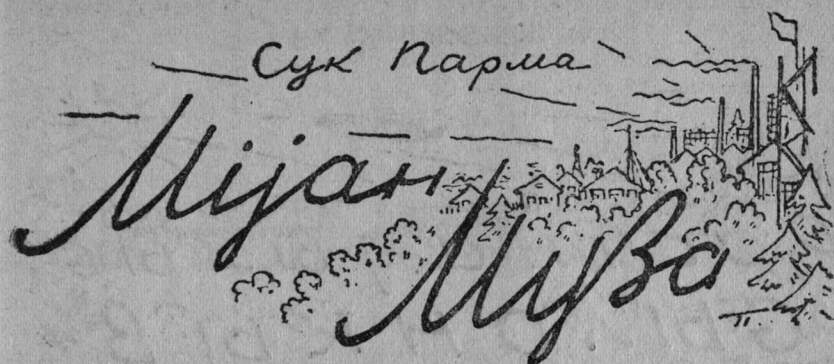 Сук Парма
Мijан
Муза